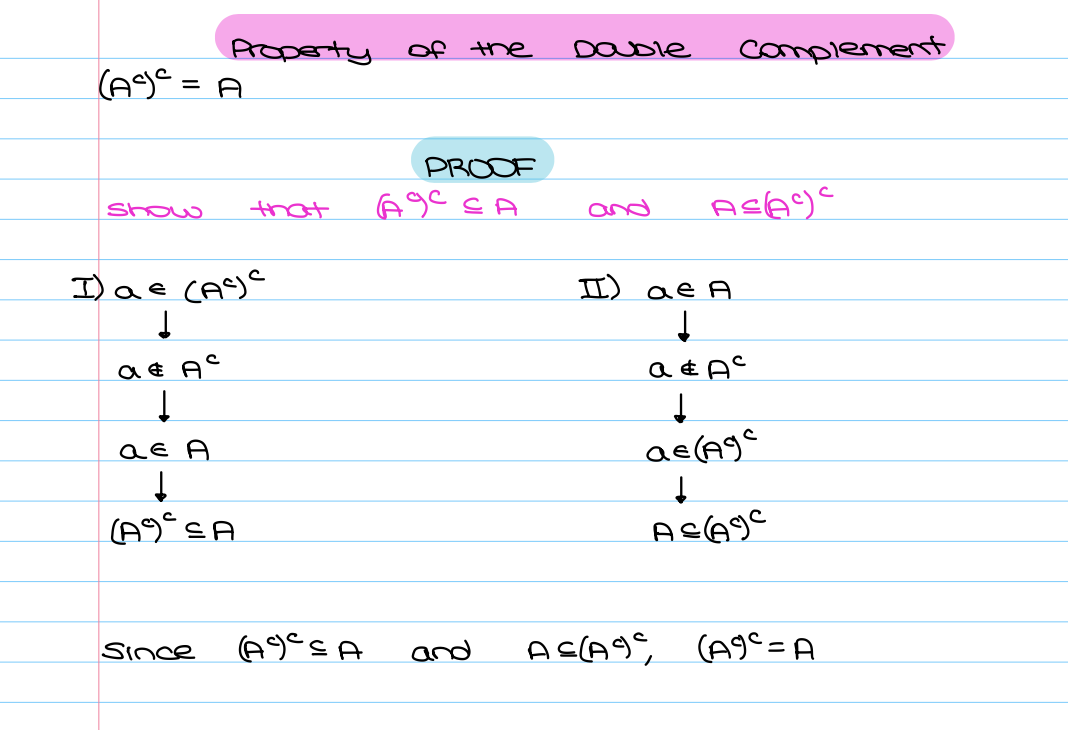 Property of the Double Complement
(Aᶜ)ᶜ = A
PROOF
show that (Aᶜ)ᶜ ⊆ A and A⊆(Aᶜ)ᶜ
I) a ∈ (Aᶜ)ᶜ
↓
a ∉ Aᶜ
↓
a ∈ A
↓
(Aᶜ)ᶜ ⊆ A
II) a ∈ A
↓
a ∉ Aᶜ
↓
a ∈ (Aᶜ)ᶜ
↓
A ⊆ (Aᶜ)ᶜ
since (Aᶜ)ᶜ ⊆ A and A⊆(Aᶜ)ᶜ, (Aᶜ)ᶜ = A